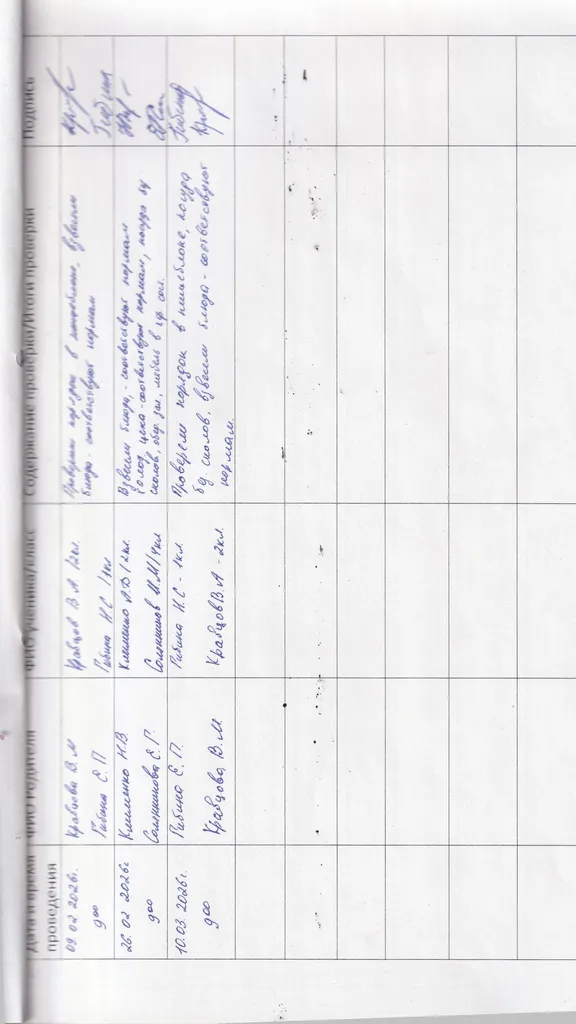 Дата и время проведения
ФИО Родителя
ФИО ученика/класс
Содержание проверки/Итоги проверки
Подпись
09.02.2026г.
9 00
Кравцова В.М
Гибина Е.П
Кравцов В.А /2кл.
Гибина И.С /1кл
Проверили порядок в пищеблоке, взвесили
блюда - соответствуют нормам
26.02 2026г
9 00
Клименко Н.В.
Солянникова Е.Г.
Клименко А.Д /2кл.
Солянников М.М/4кл
Взвесили блюда, - соответствуют нормам
холод. цеха - соответствуют нормам, посуда бу
сколов, обед. зал, мебель в хор. сост.
10.03.2026г.
9 00
Гибина Е.П.
Кравцова В.М.
Гибина И.С - 1кл
Кравцов В.А - 2кл.
Проверели порядок в пищеблоке, посуда
бу. сколов, взвесили блюда - соответствуют
нормам.